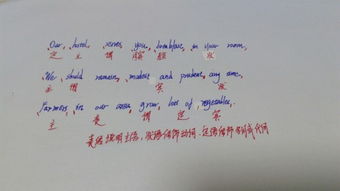 Our hotel serves you breakfast in your room.
定 主 谓 宾 状
We should remain modest and prudent any time.
主 谓 宾 状
Farmers in our area grow lots of vegetables.
主 定 谓 定 宾
表语说明主语，状语修饰动词，定语修饰名词或代词